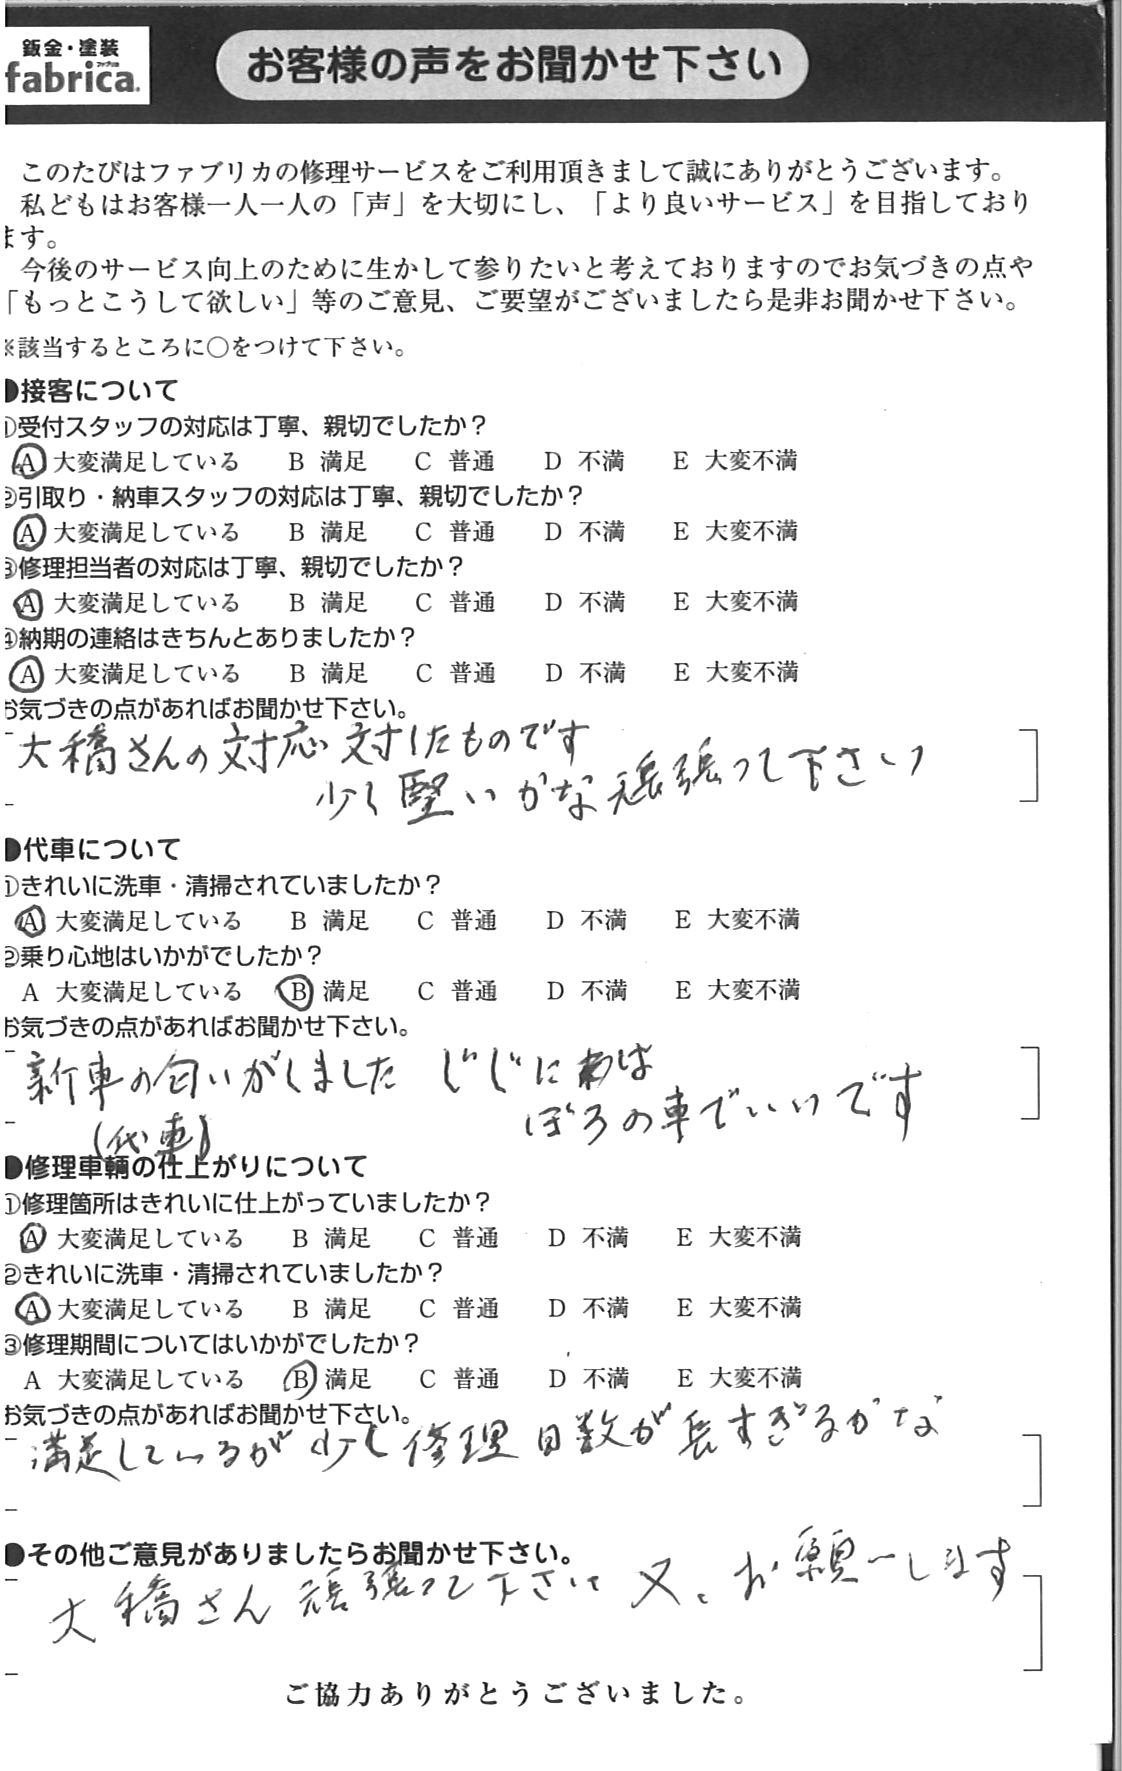 鈑金・塗装
ファブリカ
fabrica.
お客様の声をお聞かせ下さい
このたびはファブリカの修理サービスをご利用頂きまして誠にありがとうございます。
私どもはお客様一人一人の「声」を大切にし、「より良いサービス」を目指しており
ます。
今後のサービス向上のために生かして参りたいと考えておりますのでお気づきの点や
「もっとこうして欲しい」等のご意見、ご要望がございましたら是非お聞かせ下さい。
※該当するところに○をつけて下さい。
●接客について
①受付スタッフの対応は丁寧、親切でしたか？
A 大変満足している B 満足 C 普通 D 不満 E 大変不満
②引取り・納車スタッフの対応は丁寧、親切でしたか？
A 大変満足している B 満足 C 普通 D 不満 E 大変不満
③修理担当者の対応は丁寧、親切でしたか？
A 大変満足している B 満足 C 普通 D 不満 E 大変不満
④納期の連絡はきちんとありましたか？
A 大変満足している B 満足 C 普通 D 不満 E 大変不満
お気づきの点があればお聞かせ下さい。
大橋さんの対応 対したものです
少し堅いかな頑張って下さい
●代車について
①きれいに洗車・清掃されていましたか？
A 大変満足している B 満足 C 普通 D 不満 E 大変不満
②乗り心地はいかがでしたか？
A 大変満足している B 満足 C 普通 D 不満 E 大変不満
お気づきの点があればお聞かせ下さい。
新車の匂いがしました じじには
ぼろの車でいいです
(代車)
●修理車輌の仕上がりについて
①修理箇所はきれいに仕上がっていましたか？
A 大変満足している B 満足 C 普通 D 不満 E 大変不満
②きれいに洗車・清掃されていましたか？
A 大変満足している B 満足 C 普通 D 不満 E 大変不満
③修理期間についてはいかがでしたか？
A 大変満足している B 満足 C 普通 D 不満 E 大変不満
お気づきの点があればお聞かせ下さい。
満足しているが少し修理日数が長すぎるかな
●その他ご意見がありましたらお聞かせ下さい。
大橋さん 頑張って下さい 又、お願いします
ご協力ありがとうございました。